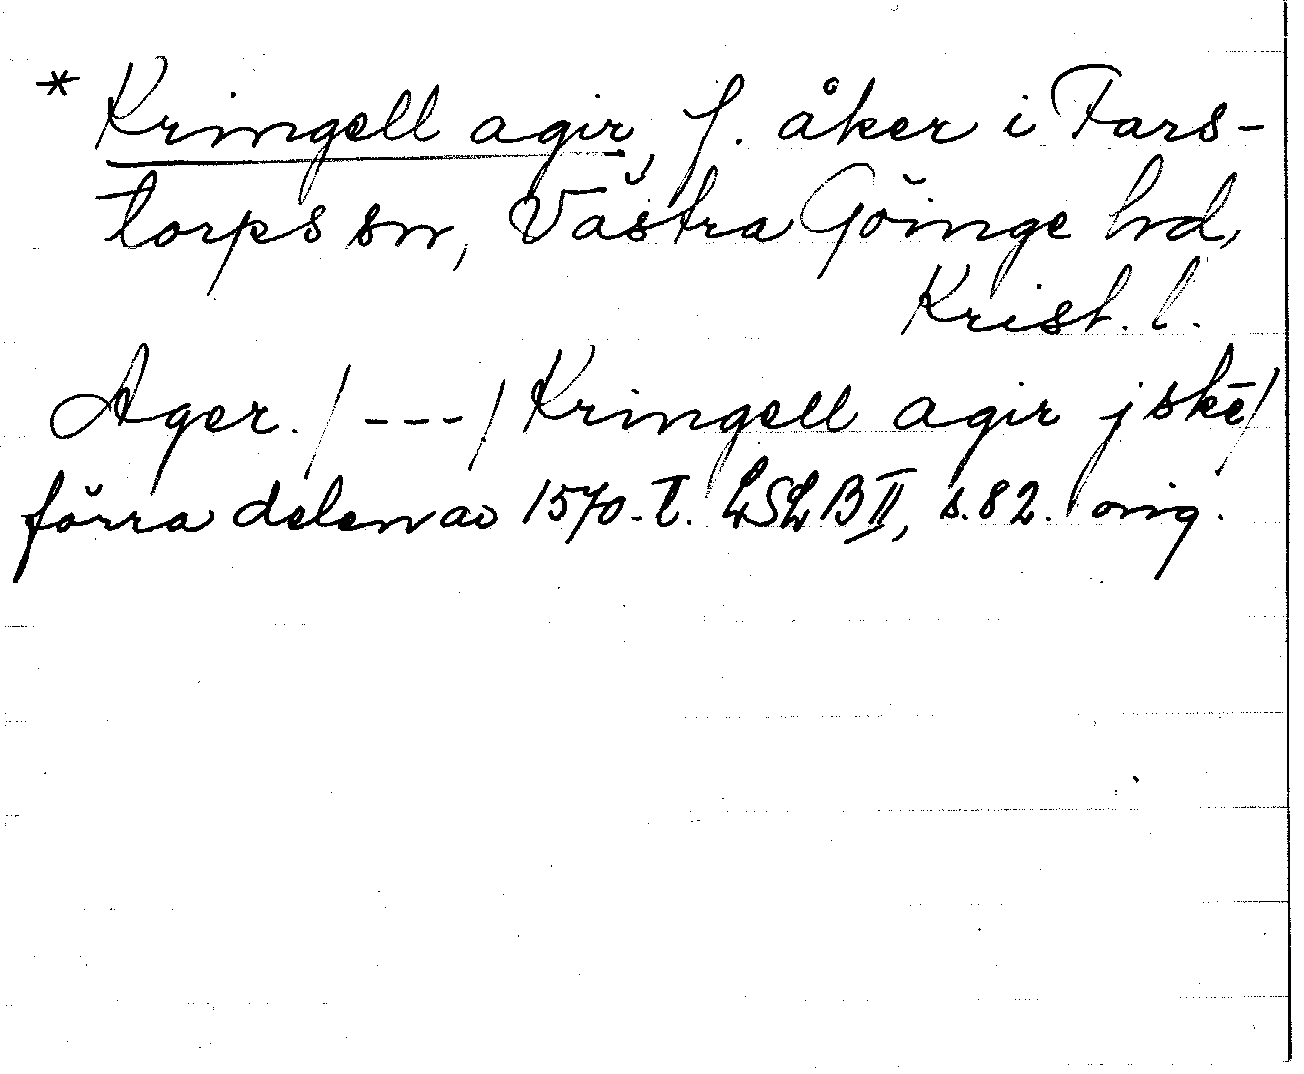 * Kringell agir, f. åker i Fars-
torps sn, Västra Göinge hd,
Krist. l.
Ager. /---/ Kringell agir j skē/
förra delen av 1570-t. LSLB II, s. 82. orig.